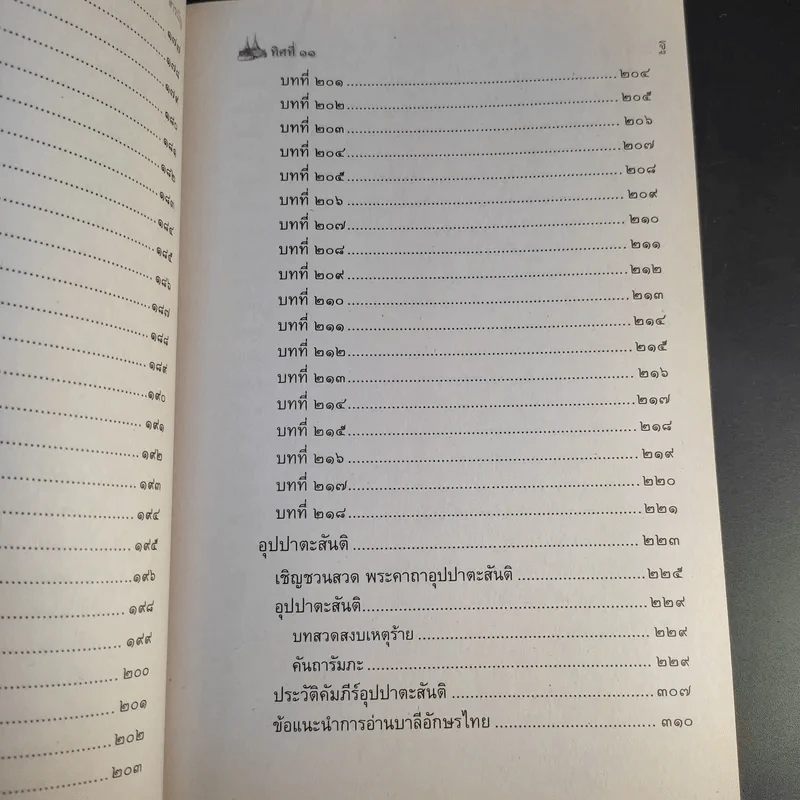 ๑๗๗
๑๗๘
๑๗๙
๑๘๐
๑๘๑
๑๘๒
๑๘๓
๑๘๔
๑๘๕
๑๘๖
๑๘๗
๑๘๘
๑๘๙
๑๙๐
๑๙๑
๑๙๒
๑๙๓
๑๙๔
๑๙๕
๑๙๖
๑๙๘
๑๙๙
๒๐๐
๒๐๑
๒๐๒
๒๐๓
ทิศที่ ๑๑
ฐ
บทที่ ๒๐๑ ๒๐๔
บทที่ ๒๐๒ ๒๐๕
บทที่ ๒๐๓ ๒๐๖
บทที่ ๒๐๔ ๒๐๗
บทที่ ๒๐๕ ๒๐๘
บทที่ ๒๐๖ ๒๐๙
บทที่ ๒๐๗ ๒๑๐
บทที่ ๒๐๘ ๒๑๑
บทที่ ๒๐๙ ๒๑๒
บทที่ ๒๑๐ ๒๑๓
บทที่ ๒๑๑ ๒๑๔
บทที่ ๒๑๒ ๒๑๕
บทที่ ๒๑๓ ๒๑๖
บทที่ ๒๑๔ ๒๑๗
บทที่ ๒๑๕ ๒๑๘
บทที่ ๒๑๖ ๒๑๙
บทที่ ๒๑๗ ๒๒๐
บทที่ ๒๑๘ ๒๒๑
อุปปาตะสันติ ๒๒๓
เชิญชวนสวด พระคาถาอุปปาตะสันติ ๒๒๕
อุปปาตะสันติ ๒๒๙
บทสวดสงบเหตุร้าย ๒๒๙
คันถารัมภะ ๒๒๙
ประวัติคัมภีร์อุปปาตะสันติ ๓๐๗
ข้อแนะนำการอ่านบาลีอักษรไทย ๓๑๐